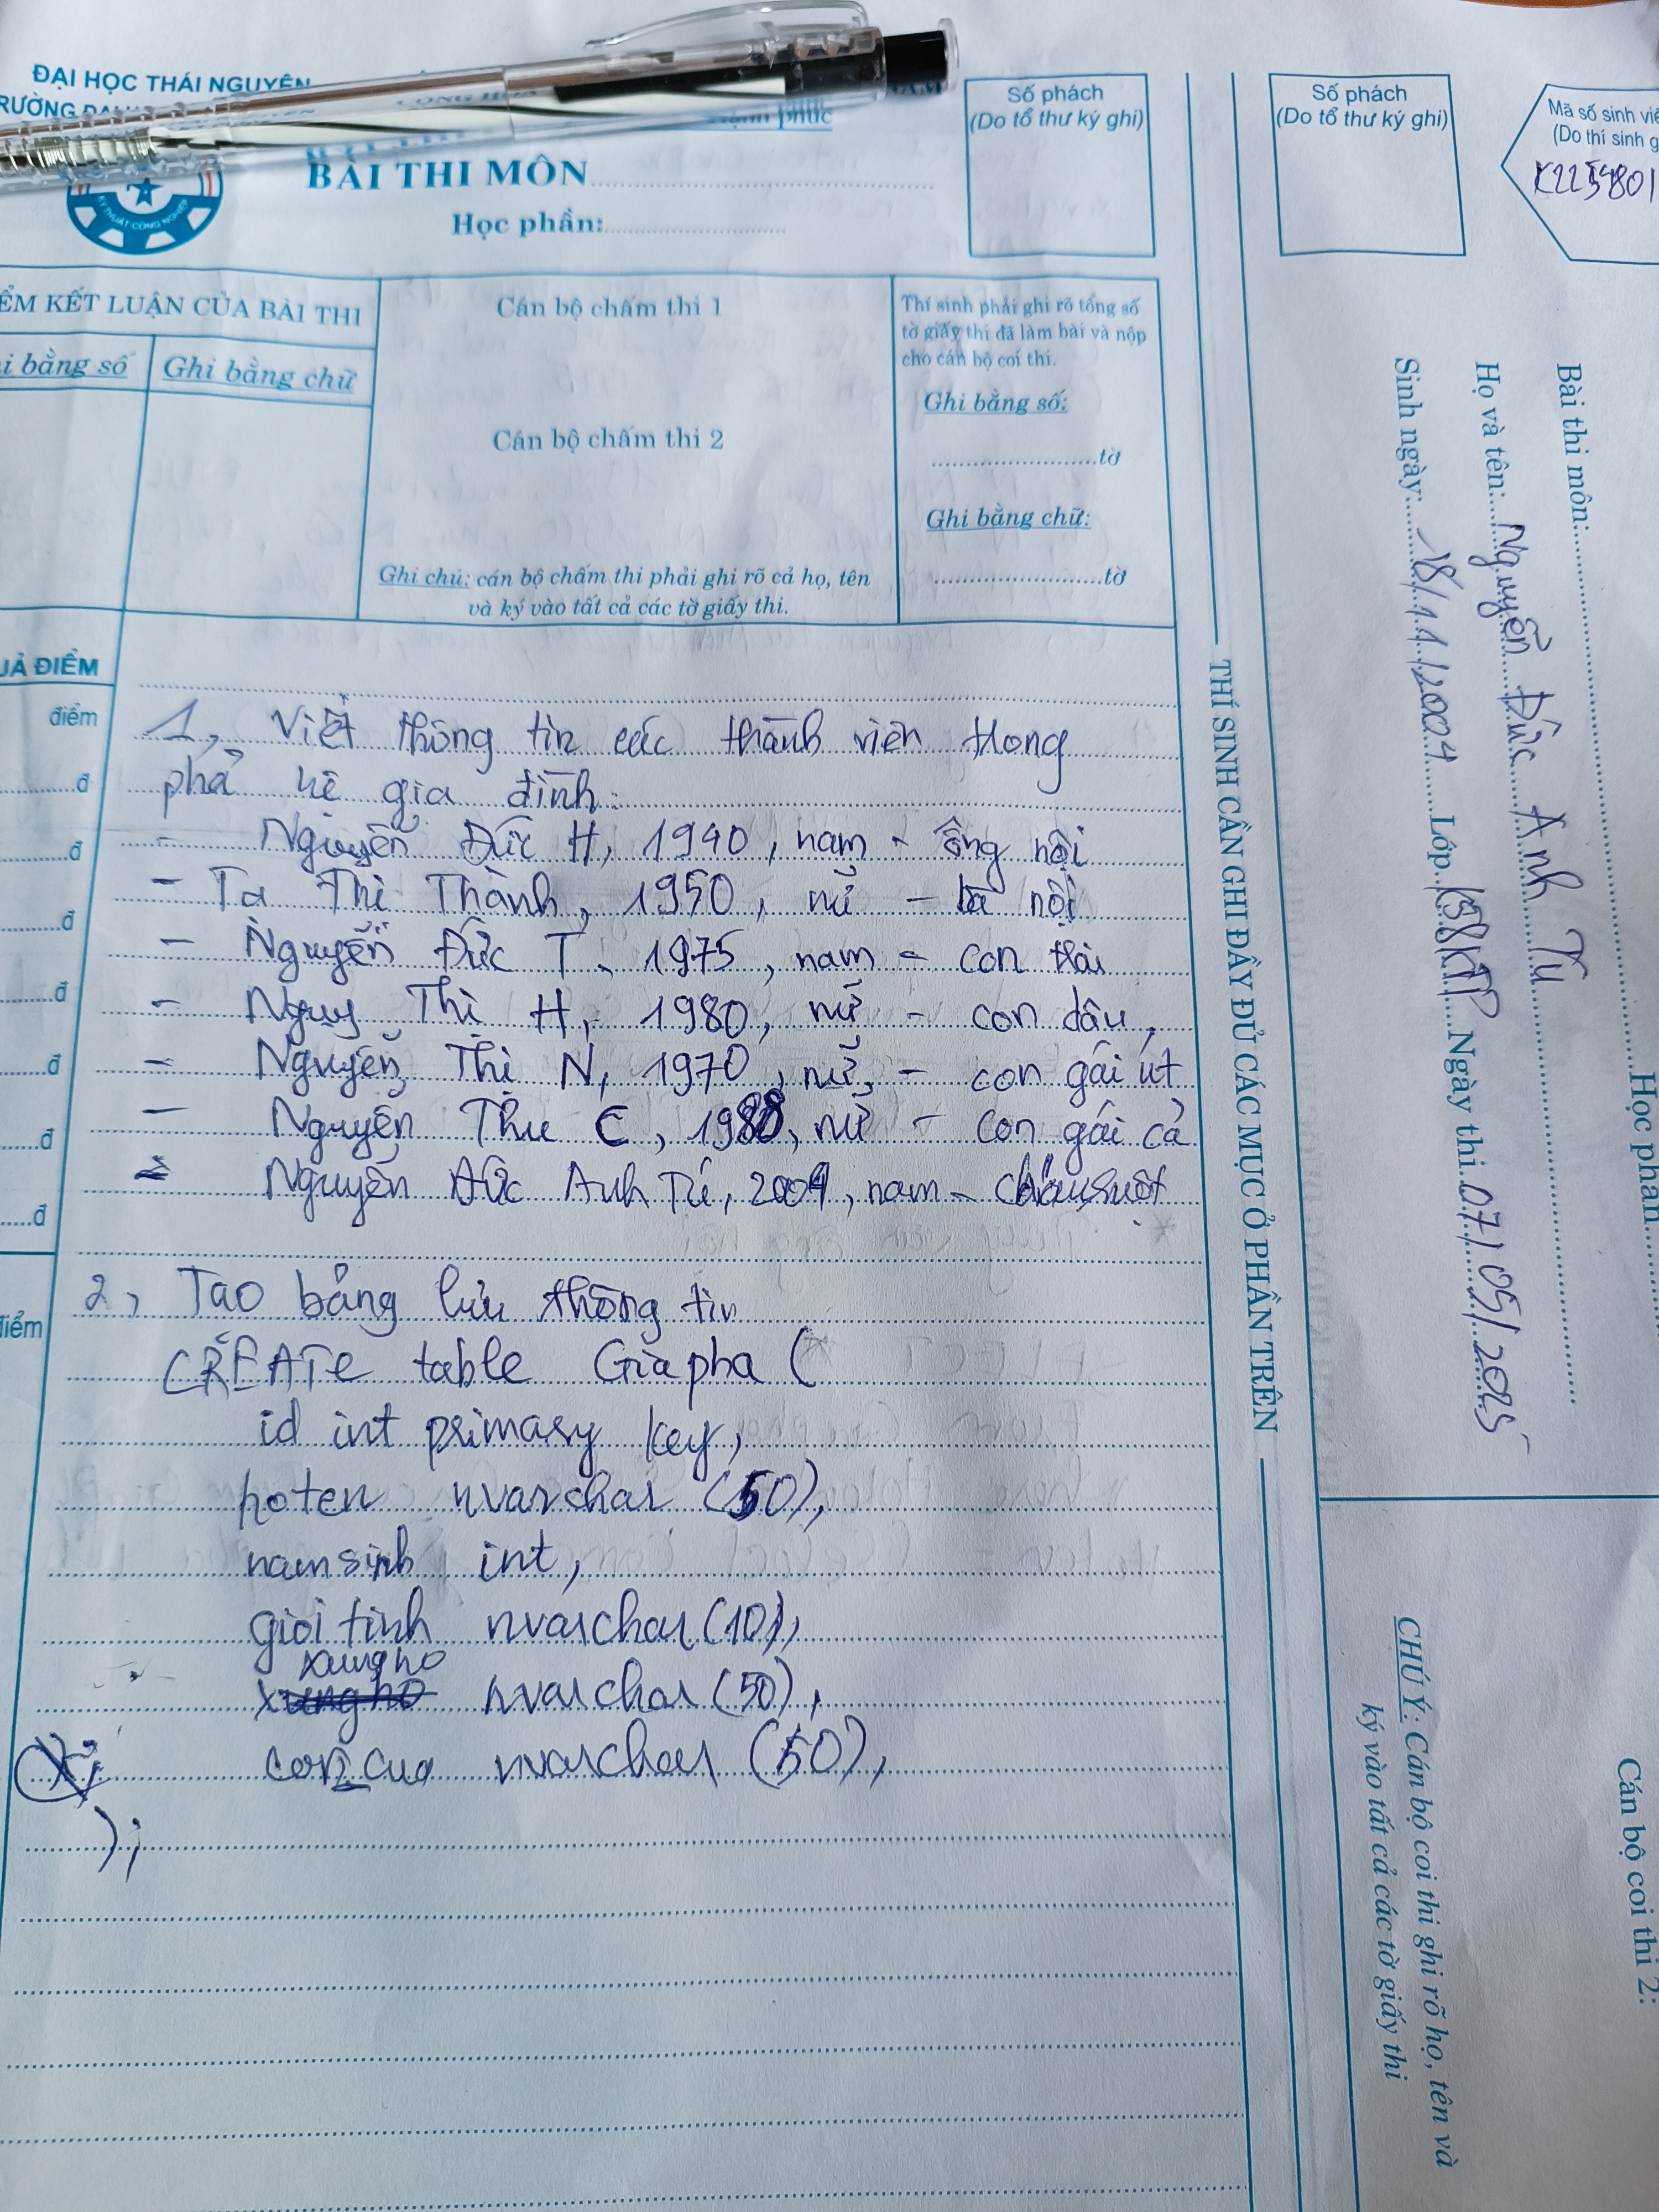 ĐẠI HỌC THÁI NGUYÊN
RƯỜNG ĐẠI
BÀI THI MÔN
Học phần:
KỸ THUẬT CÔNG NGHIỆP
Số phách
(Do tổ thư ký ghi)
ỂM KẾT LUẬN CỦA BÀI THI
i bằng số
Ghi bằng chữ
Cán bộ chấm thi 1
Cán bộ chấm thi 2
Ghi chú: cán bộ chấm thi phải ghi rõ cả họ, tên
và ký vào tất cả các tờ giấy thi.
Thí sinh phải ghi rõ tổng số
tờ giấy thi đã làm bài và nộp
cho cán bộ coi thi.
Ghi bằng số:
tờ
Ghi bằng chữ:
tờ
UẢ ĐIỂM
điểm
đ
đ
đ
đ
đ
đ
đ
điểm
1, Viết thông tin các thành viên trong
phả hệ gia đình:
- Nguyễn Đức H, 1940, nam - ông nội
- Tạ Thị Thành, 1950, nữ - bà nội
- Nguyễn Đức T, 1975, nam - con trai
- Nguy Thị H, 1980, nữ - con dâu,
- Nguyễn Thị N, 1970, nữ, - con gái út
- Nguyễn Thu C, nữ - con gái cả
- Nguyễn Đức Anh Tú, 2004, nam -
2, Tạo bảng lưu thông tin
CREATe table Giapha (
id int primary key,
hoten nvarchar (50),
namsinh int,
gioitinh nvarchar(10),
xungho
nvarchar(50),
con_cua nvarchar (50),
);
THÍ SINH CẦN GHI ĐẦY ĐỦ CÁC MỤC Ở PHẦN TRÊN
Số phách
(Do tổ thư ký ghi)
Mã số sinh viê
(Do thí sinh g
Bài thi môn: Học phần
Họ và tên: Nguyễn Đức Anh Tú
Sinh ngày: 18/11/2004 Lớp Ngày thi 07/05/2025
CHÚ Ý: Cán bộ coi thi ghi rõ họ, tên và
ký vào tất cả các tờ giấy thi
Cán bộ coi thi 2: